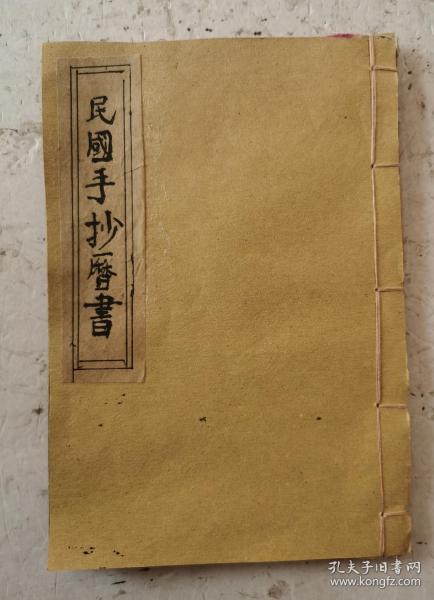 民國手抄曆書
孔夫子旧书网
www.kongfz.com